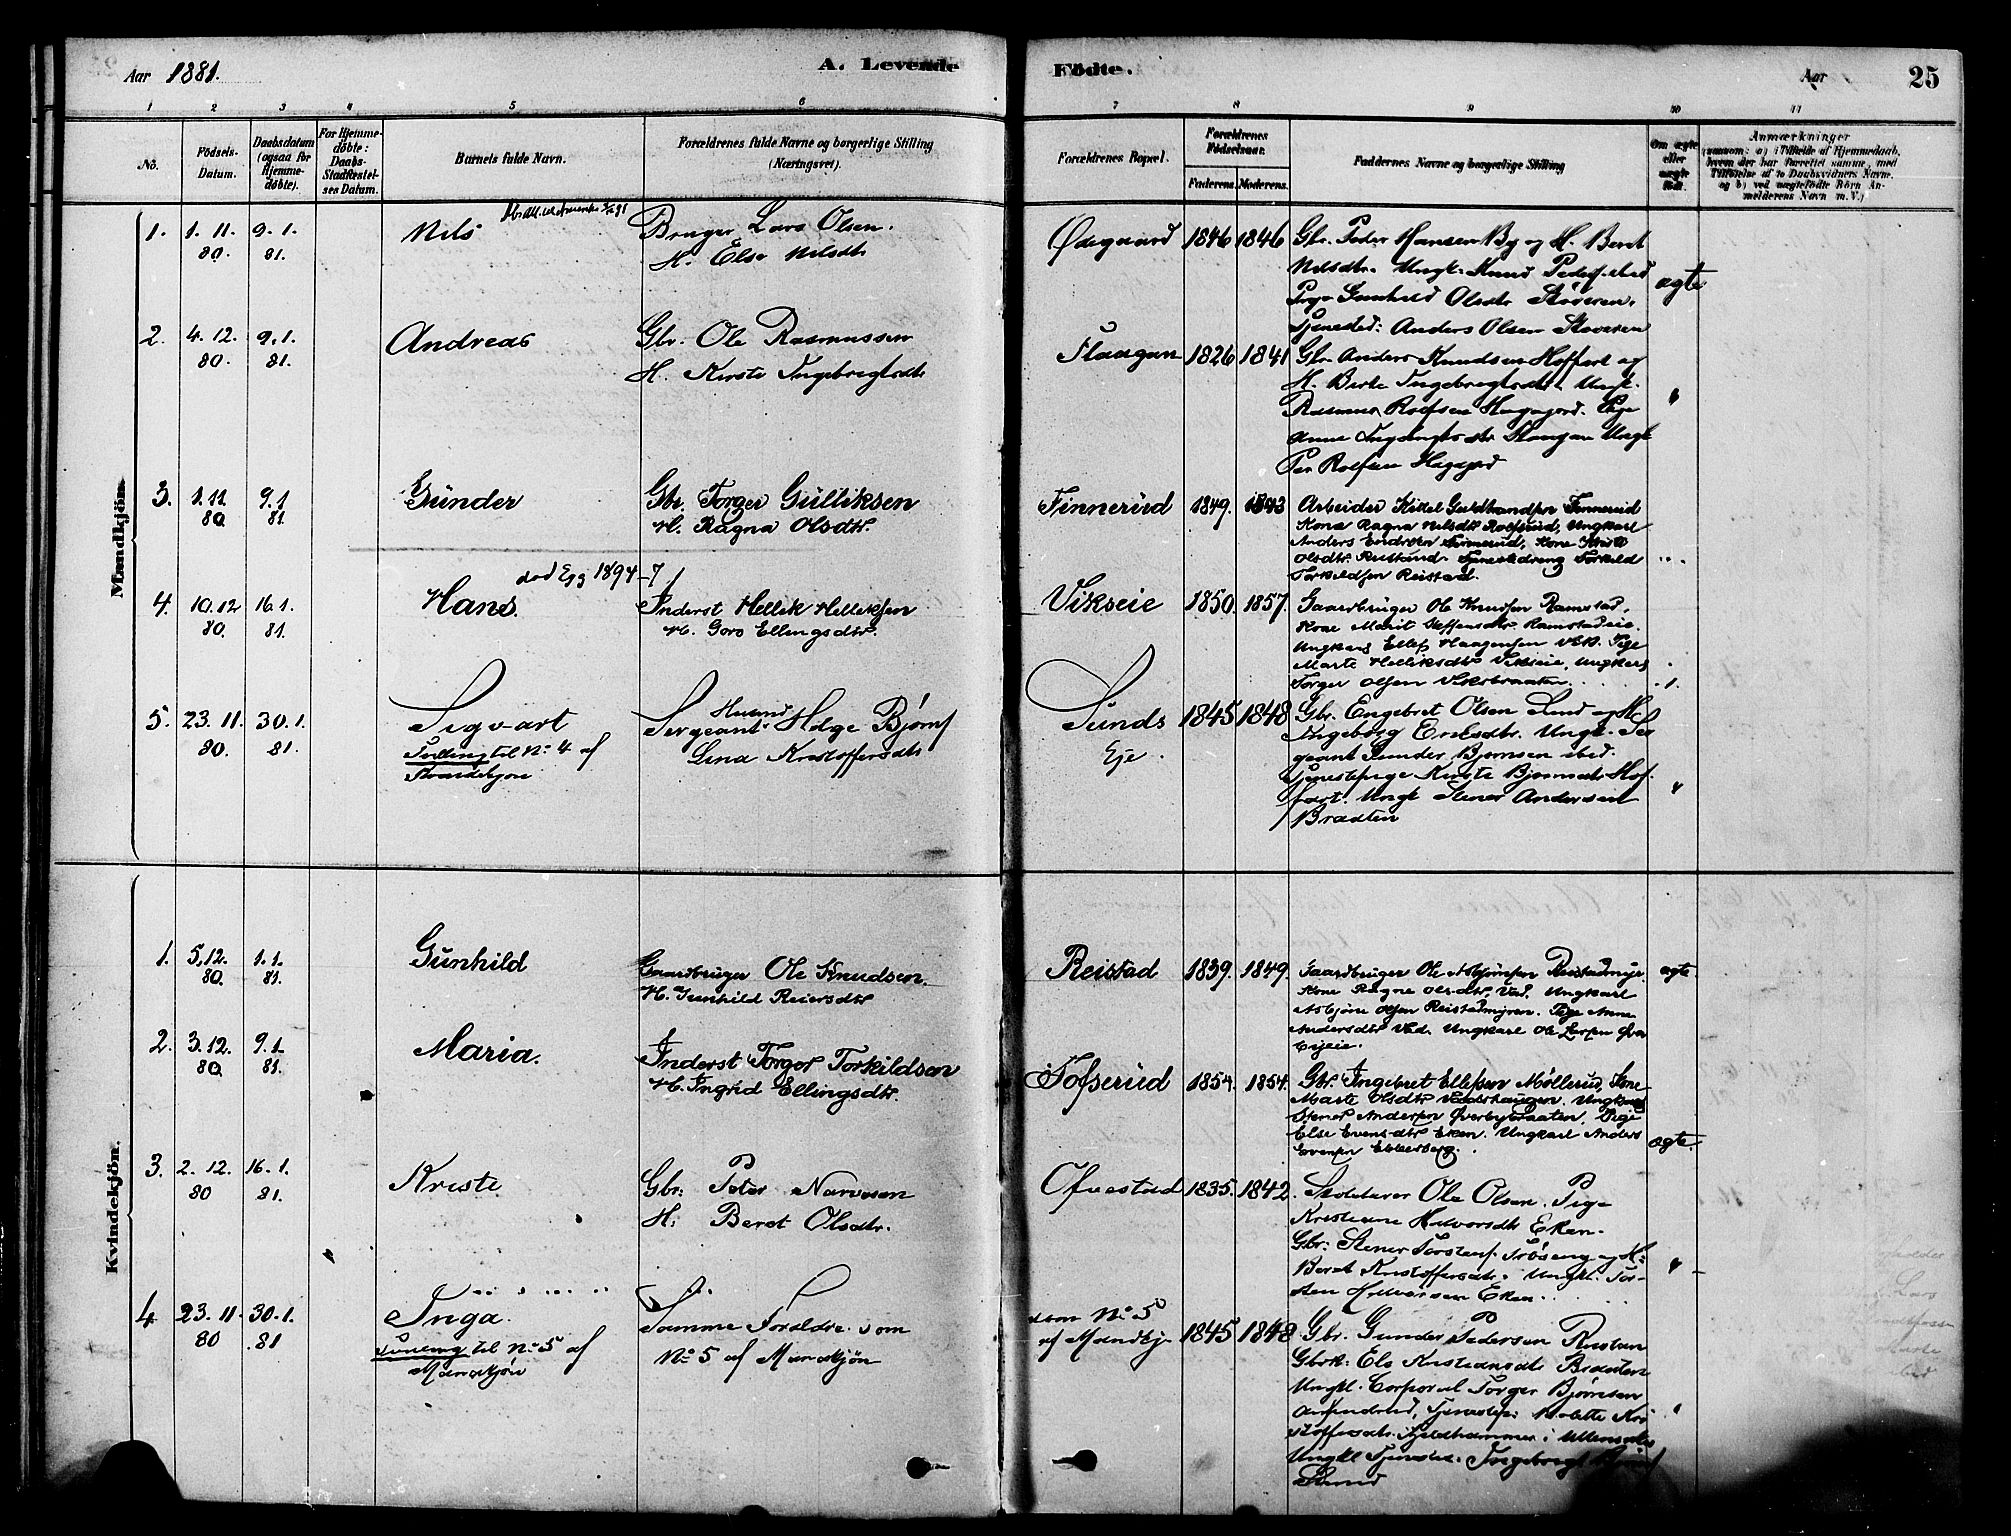 Aar 1881.
A. Levende Födte.
Aar 25
1 2 3 4 5 6 7 8 9 10 11
No.
Födsels-Datum.
Daabsdatum (ogsaa for Hjemme-döbte).
For Hjemme-döbte: Daabs-Stadfæstel-ses Datum.
Barnets fulde Navn.
Forældrenes fulde Navne og borgerlige Stilling (Næringsvei).
Forældrenes Bopæl.
Forældrenes Födselsaar.
Faderens. Moderens.
Faddernes Navne og borgerlige Stilling
Om ægte eller uægte födt.
Anmærkninger
(saasom: a) i Tilfælde af Hjemmedaab, hvem der har forrettet samme, med Tilföielse af to Daabsvidners Navne, og b) ved uægtefödte Börn An-melderens Navn m. V.)
Mandkjön.
1. 1. 11. 80. 9. 1. 81.
Nils
Bruger Lars Olsen.
H. Else Nilsdtr
Ødegaard 1846 1846
Gbr. Peder Hansen By og H. Berit
Nilsdtr. Ungk. Knud Peders. ibid
Pige Gunhild Olsdtr Støveren.
Tjenested: Anders Olsen Støveren
ægte
2. 4. 12. 80. 9. 1. 81.
Andreas
Gbr. Ole Rasmussen
H. Kirste Ingebregtsdtr
Flaagan 1826 1841
Gbr Anders Knudsen Hoffart og
H. Birte Ingebregtsdtr. Ungk.
Rasmus Rolfsen Hagajord. Pige
Anne Ingebregtsdtr Flaagan Ungk
Per Rolfsen Hagajord
"
3. 1. 11. 80. 9. 1 81.
Günder
Gbr. Torger Gulliksen
H. Ragna Olsdtr.
Finnerud 1849. 1843
Arbeider Kittel Guldbrandsen Finnerud
Kone Ragna Nilsdtr Rolfsrud, Ungkarl
Anders Endresen Finnerud, Kone
Olsdtr. Reistand. Tjenestedreng Torkild
Torkildsen Reistad.
4. 10. 12 80. 16. 1. 81.
død Egg 1894
Hans.
Inderst Hellik Helliksen
H. Goro Ellingsdtr.
Vikseie 1850. 1857.
Gaardbruger Ole Knudsen Ramstad.
Kone Marit Steffensdtr. Ramstadeie.
Ungkarl Ellef Haagensen Vik. Pige
Marte Helliksdtr Vikseie, Ungkarl
Torger Olsen Viksbraaten.
5. 23. 11. 80. 30. 1. 81.
Sigvart
Tvilling til No 4 af
Kvindekjøn
Husmd
Sergeant Helge Bjørns
Lina Kristoffersdtr
Sunds
Eje. 1845 1848
Gbr. Engebret Olsen Sund og H.
Ingeborg Eriksdtr. Ungk. Ser
geant Gunder Bjørnsen ibid.
Tjenestepige Kirste Bjørnsdtr Hof
fart. Ungk Stener Andersen
Braaten
"
Kvindekjön.
1. 5. 12. 80. 1. 1. 81.
Gunhild
Gaardbruger Ole Knudsen.
H. Gunhild Reiersdtr
Reistad 1839. 1849.
Gaardbruger Ole Asbjørnsen Reistadmyr
Kone Ragne Olsdtr. Vad. Ungkarl
Asbjørn Olsen Reistadmyren. Pige Anne
Andersdtr Vad. Ungkarl Ole Larsen
ægte
2. 3. 12. 80. 9. 1. 81.
Maria.
Inderst Torger Torkildsen
H. Ingrid Ellingsdtr.
Tofserud 1854. 1854.
Gbr. Ingebret Ellefsen Møllerud, Kone
Marte Olsdtr Vadshaugen. Ungkarl
Stener Andersen Øverbybraaten. Pige
Else Evensdtr Eken. Ungkarl Anders
Evensen Ekkersberg.
ægte
3. 2. 12. 80 16. 1. 81.
Kristi
Gbr: Peter Narvesen
H: Berit Olsdtr.
Ofvestad 1835. 1842.
Skolelærer Ole Olsen. Pige
Kristiane Halvorsdtr Eken.
Gbr: Stener Torstens. Trøseng og H:
Berit Kristoffersdtr. Ungkl. Tor-
sten Halvorsen Eken.
"
4 23. 11. 80 30. 1. 81
Inga.
Tvilling til No 5 af
Mandkjøn
Samme Foreldre som
No 5 af Mandkjøn
som No 5
af Mandkj 1845 1848
Gbr. Gunder Pedersen Rustan
Gbrk: Else Kristiansdtr Braaten
Ungkl. Corporal Torger Bjørnsen
Tjenestep: Nolette Kri
stoffersdtr. Gjeldhammer i Ullensaker
Ungkl Tjenested. Ingebregt Bjørns
Sund